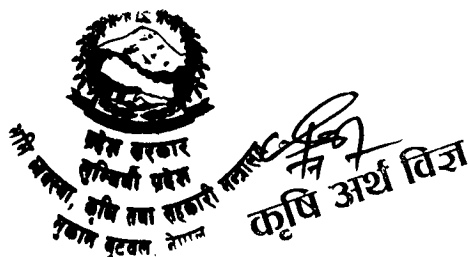 प्रदेश सरकार
लुम्बिनी प्रदेश
भूमि व्यवस्था, कृषि तथा सहकारी मन्त्रालय
मुकाम बुटवल, नेपाल
कृषि अर्थ विज्ञ